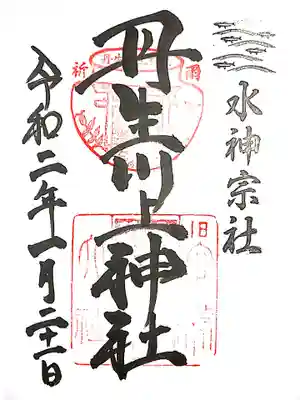 水神宗社
丹生川上神社
雨
祈
令和二年一月二十一日